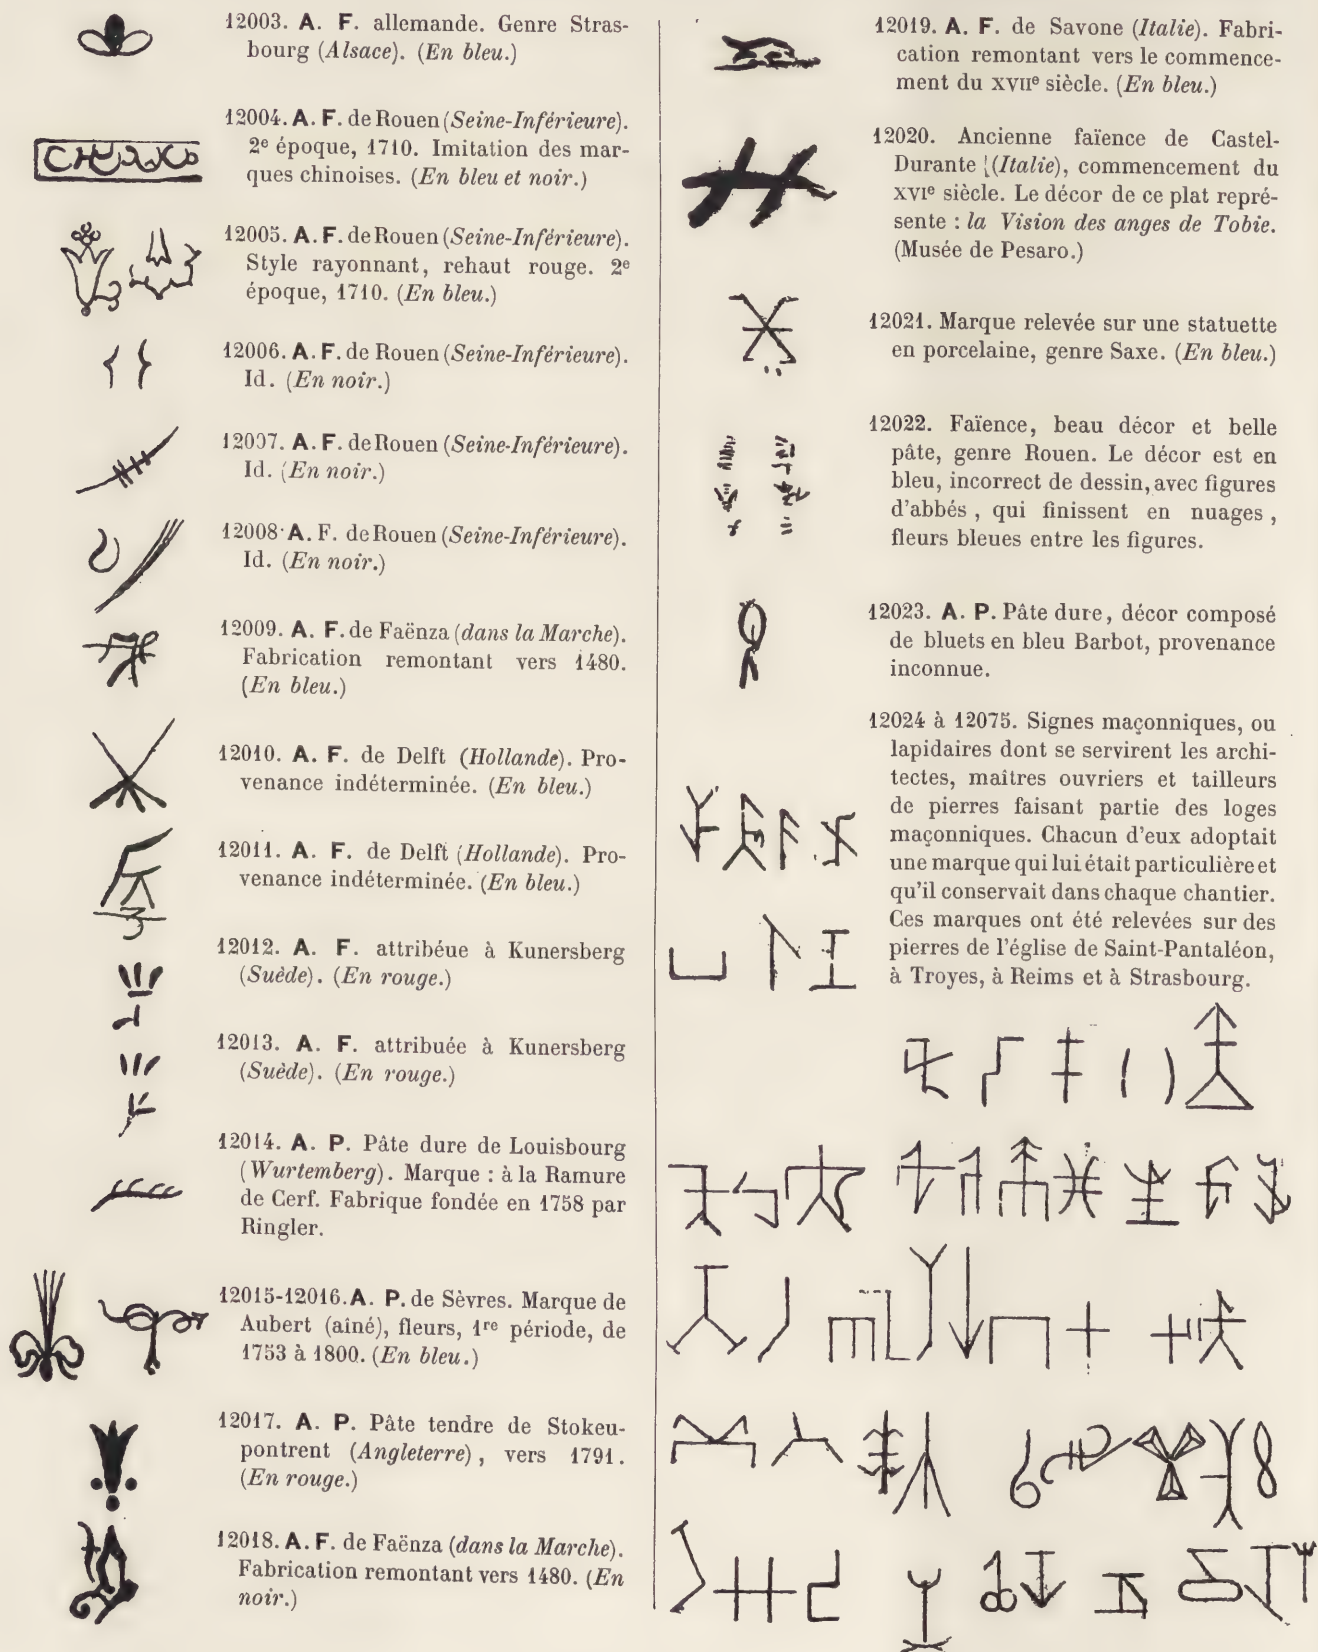 12003. A. F. allemande. Genre Stras-
bourg (Alsace). (En bleu.)
12004. A. F. de Rouen (Seine-Inférieure).
2e époque, 1710. Imitation des mar-
ques chinoises. (En bleu et noir.)
12005. A. F. de Rouen (Seine-Inférieure).
Style rayonnant, rehaut rouge. 2e
époque, 1710. (En bleu.)
12006. A. F. de Rouen (Seine-Inférieure).
Id. (En noir.)
12007. A. F. de Rouen (Seine-Inférieure).
Id. (En noir.)
12008 A. F. de Rouen (Seine-Inférieure).
Id. (En noir.)
12009. A. F. de Faënza (dans la Marche).
Fabrication remontant vers 1480.
(En bleu.)
12010. A. F. de Delft (Hollande). Pro-
venance indéterminée. (En bleu.)
12011. A. F. de Delft (Hollande). Pro-
venance indéterminée. (En bleu.)
12012. A. F. attribéue à Kunersberg
(Suède). (En rouge.)
12013. A. F. attribuée à Kunersberg
(Suède). (En rouge.)
12014. A. P. Pâte dure de Louisbourg
(Wurtemberg). Marque : à la Ramure
de Cerf. Fabrique fondée en 1758 par
Ringler.
12015-12016. A. P. de Sèvres. Marque de
Aubert (aîné), fleurs, 1re période, de
1753 à 1800. (En bleu.)
12017. A. P. Pâte tendre de Stokeu-
pontrent (Angleterre), vers 1791.
(En rouge.)
12018. A. F. de Faënza (dans la Marche).
Fabrication remontant vers 1480. (En
noir.)
12019. A. F. de Savone (Italie). Fabri-
cation remontant vers le commence-
ment du XVIIe siècle. (En bleu.)
12020. Ancienne faïence de Castel-
Durante (Italie), commencement du
XVIe siècle. Le décor de ce plat repré-
sente : la Vision des anges de Tobie.
(Musée de Pesaro.)
12021. Marque relevée sur une statuette
en porcelaine, genre Saxe. (En bleu.)
12022. Faïence, beau décor et belle
pâte, genre Rouen. Le décor est en
bleu, incorrect de dessin, avec figures
d'abbés, qui finissent en nuages,
fleurs bleues entre les figures.
12023. A. P. Pâte dure, décor composé
de bluets en bleu Barbot, provenance
inconnue.
12024 à 12075. Signes maçonniques, ou
lapidaires dont se servirent les archi-
tectes, maîtres ouvriers et tailleurs
de pierres faisant partie des loges
maçonniques. Chacun d'eux adoptait
une marque qui lui était particulière et
qu'il conservait dans chaque chantier.
Ces marques ont été relevées sur des
pierres de l'église de Saint-Pantaléon,
à Troyes, à Reims et à Strasbourg.